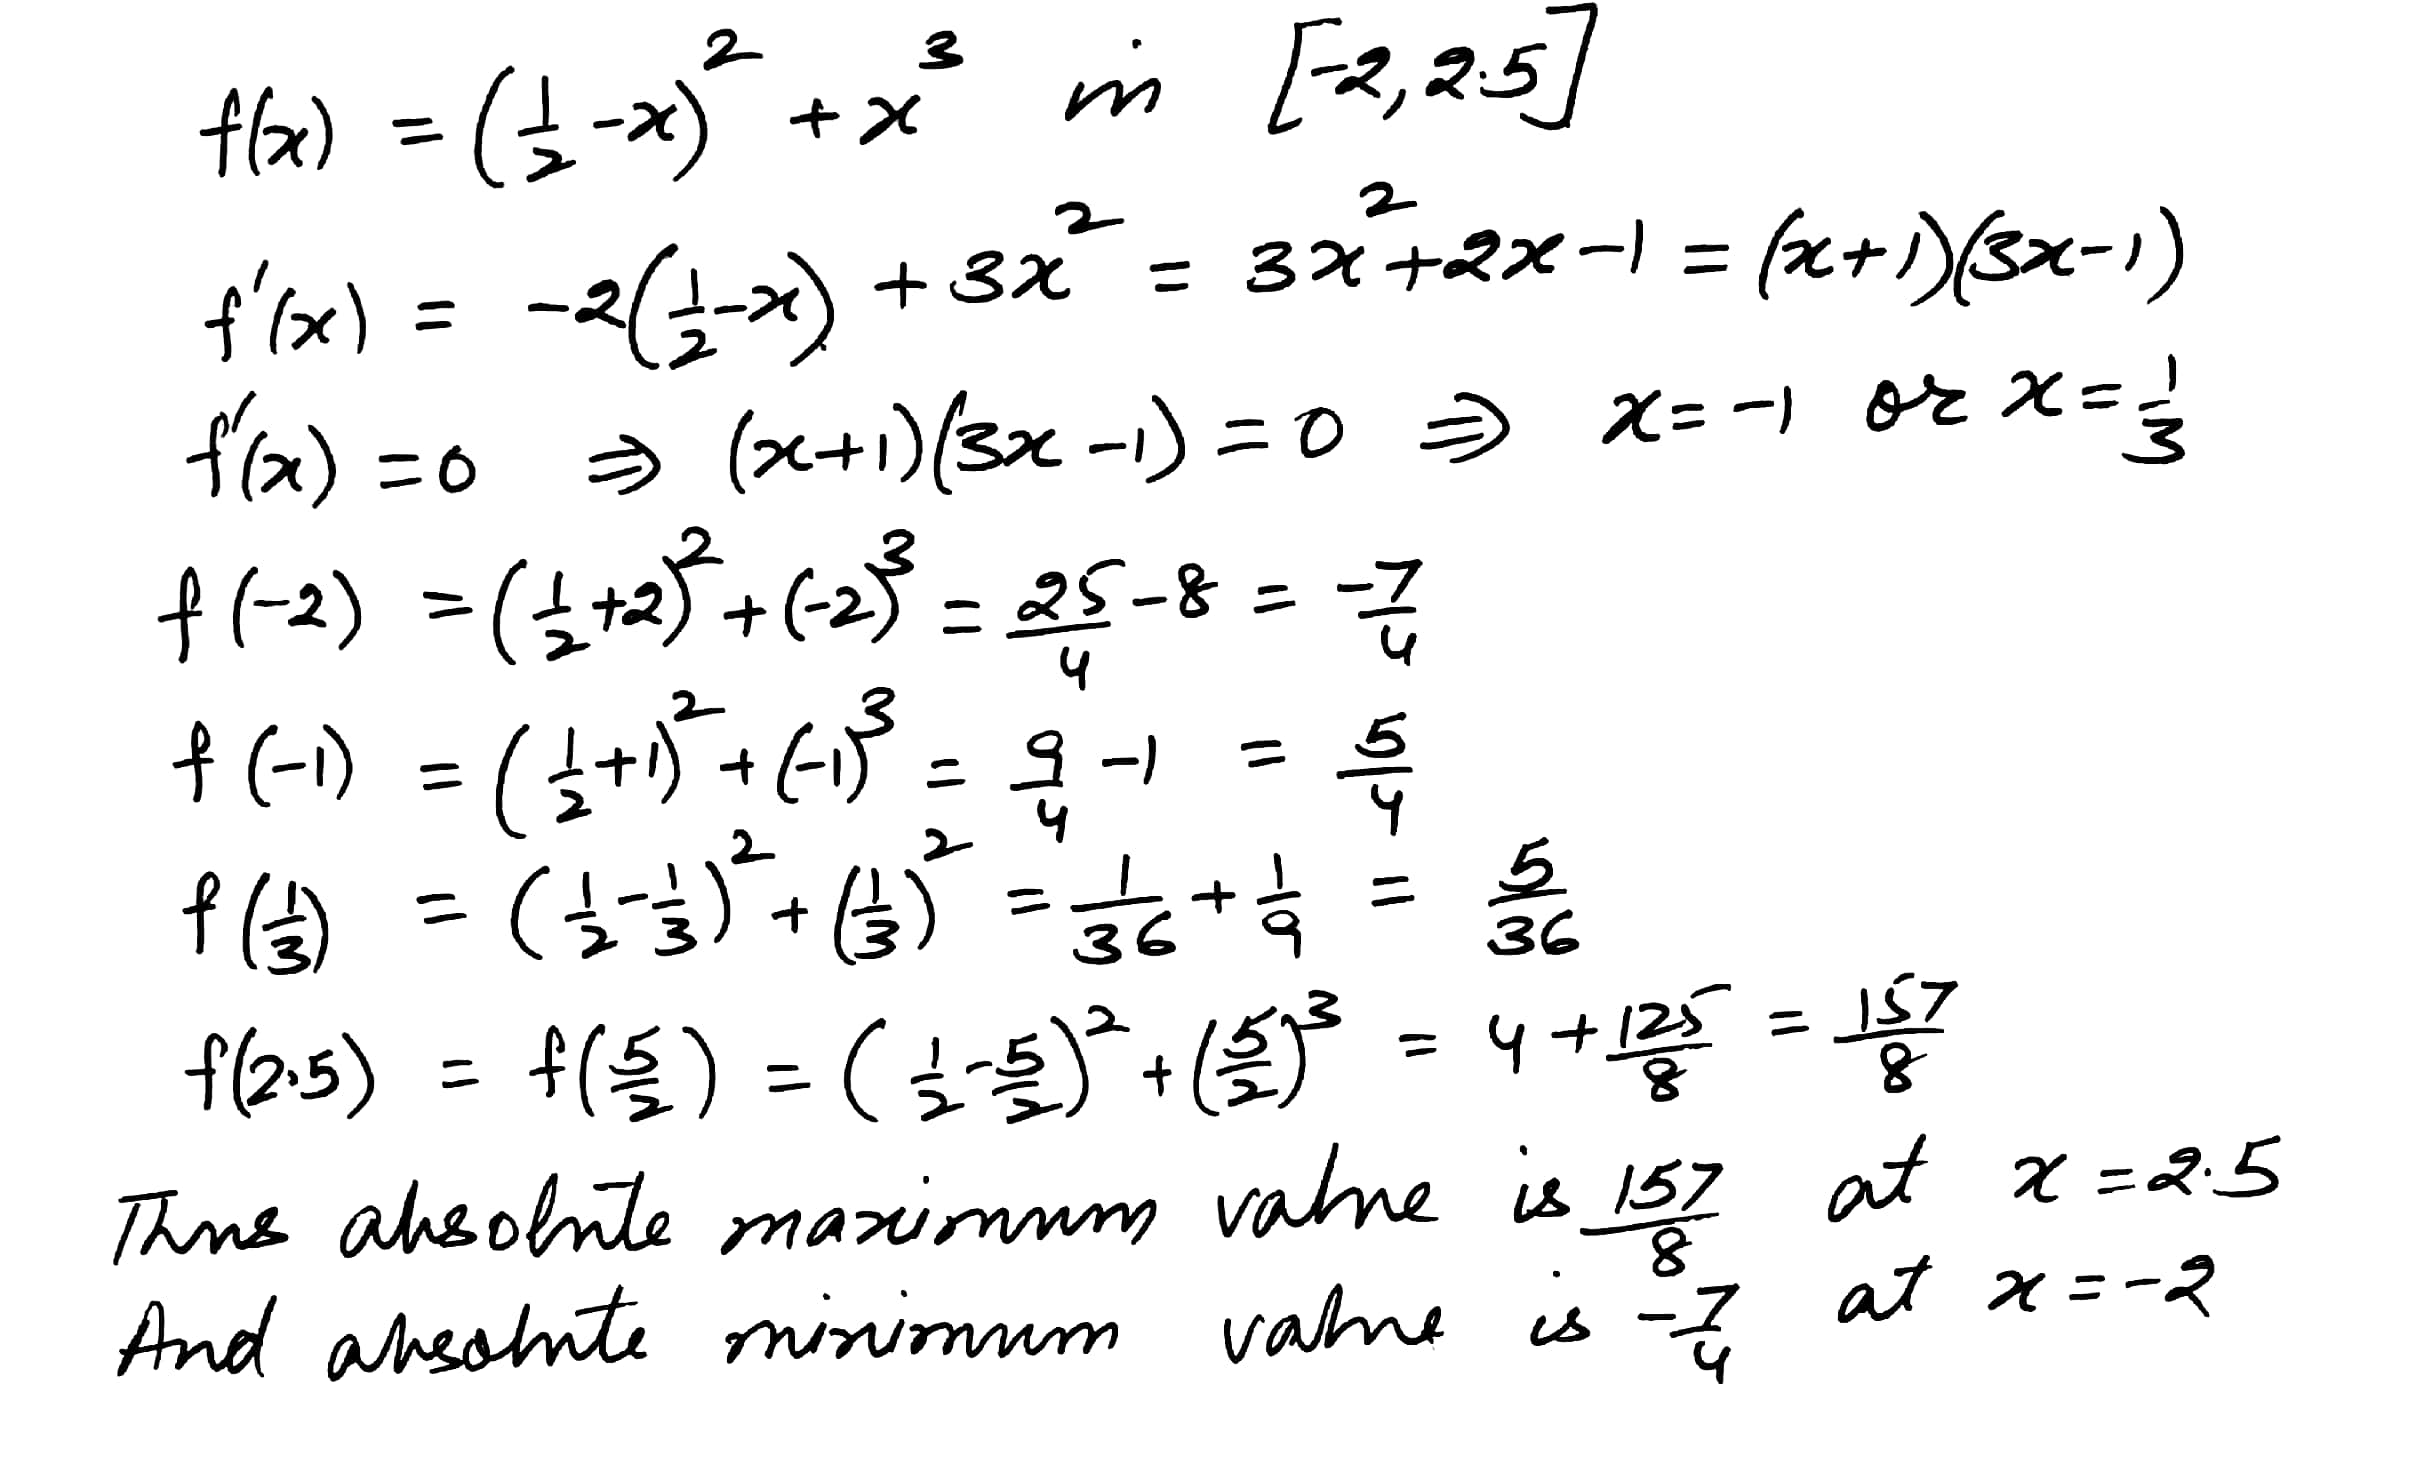 f(x) = (1/2 - x)² + x³ in [-2, 2.5]
f'(x) = -2(1/2 - x) + 3x² = 3x² + 2x - 1 = (x+1)(3x-1)
f'(x) = 0 ⇒ (x+1)(3x-1) = 0 ⇒ x = -1 or x = 1/3
f(-2) = (1/2 + 2)² + (-2)³ = 25/4 - 8 = -7/4
f(-1) = (1/2 + 1)² + (-1)³ = 9/4 - 1 = 5/4
f(1/3) = (1/2 - 1/3)² + (1/3)² = 1/36 + 1/9 = 5/36
f(2.5) = f(5/2) = (1/2 - 5/2)² + (5/2)³ = 4 + 125/8 = 157/8
Thus absolute maximum value is 157/8 at x = 2.5
And absolute minimum value is -7/4 at x = -2